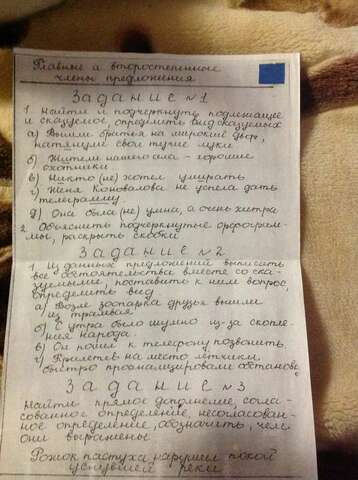 Главные и второстепенные
члены предложения
Задание №1
1. Найти и подчеркнуть подлежащее
и сказуемое, определить вид сказуемых
а) Вышли братья на широкий двор,
натянули свои тугие луки
б) Жители нашего села - хорошие
охотники
в) Никто (не) хотел умирать
г) Женя Коновалова не успела дать
телеграмму
д) Она была (не) умна, а очень хитра
2. Объяснить подчеркнутые орфограм-
мы, раскрыть скобки
Задание №2
1. Из данных предложений выписать
все обстоятельства вместе со ска-
зуемыми, поставить к ним вопрос,
определить вид
а) Возле зоопарка друзья вышли
из трамвая
б) С утра было шумно из-за скопле-
ния народа.
в) Он пошел к телефону позвонить
г) Прилетев на место летчики,
быстро проанализировали обстановку
Задание №3
Найти прямое дополнение, согла-
сованное определение, несогласован-
ное определение, обозначить, чем
они выражены
Рожок пастуха нарушил покой
уснувшей реки